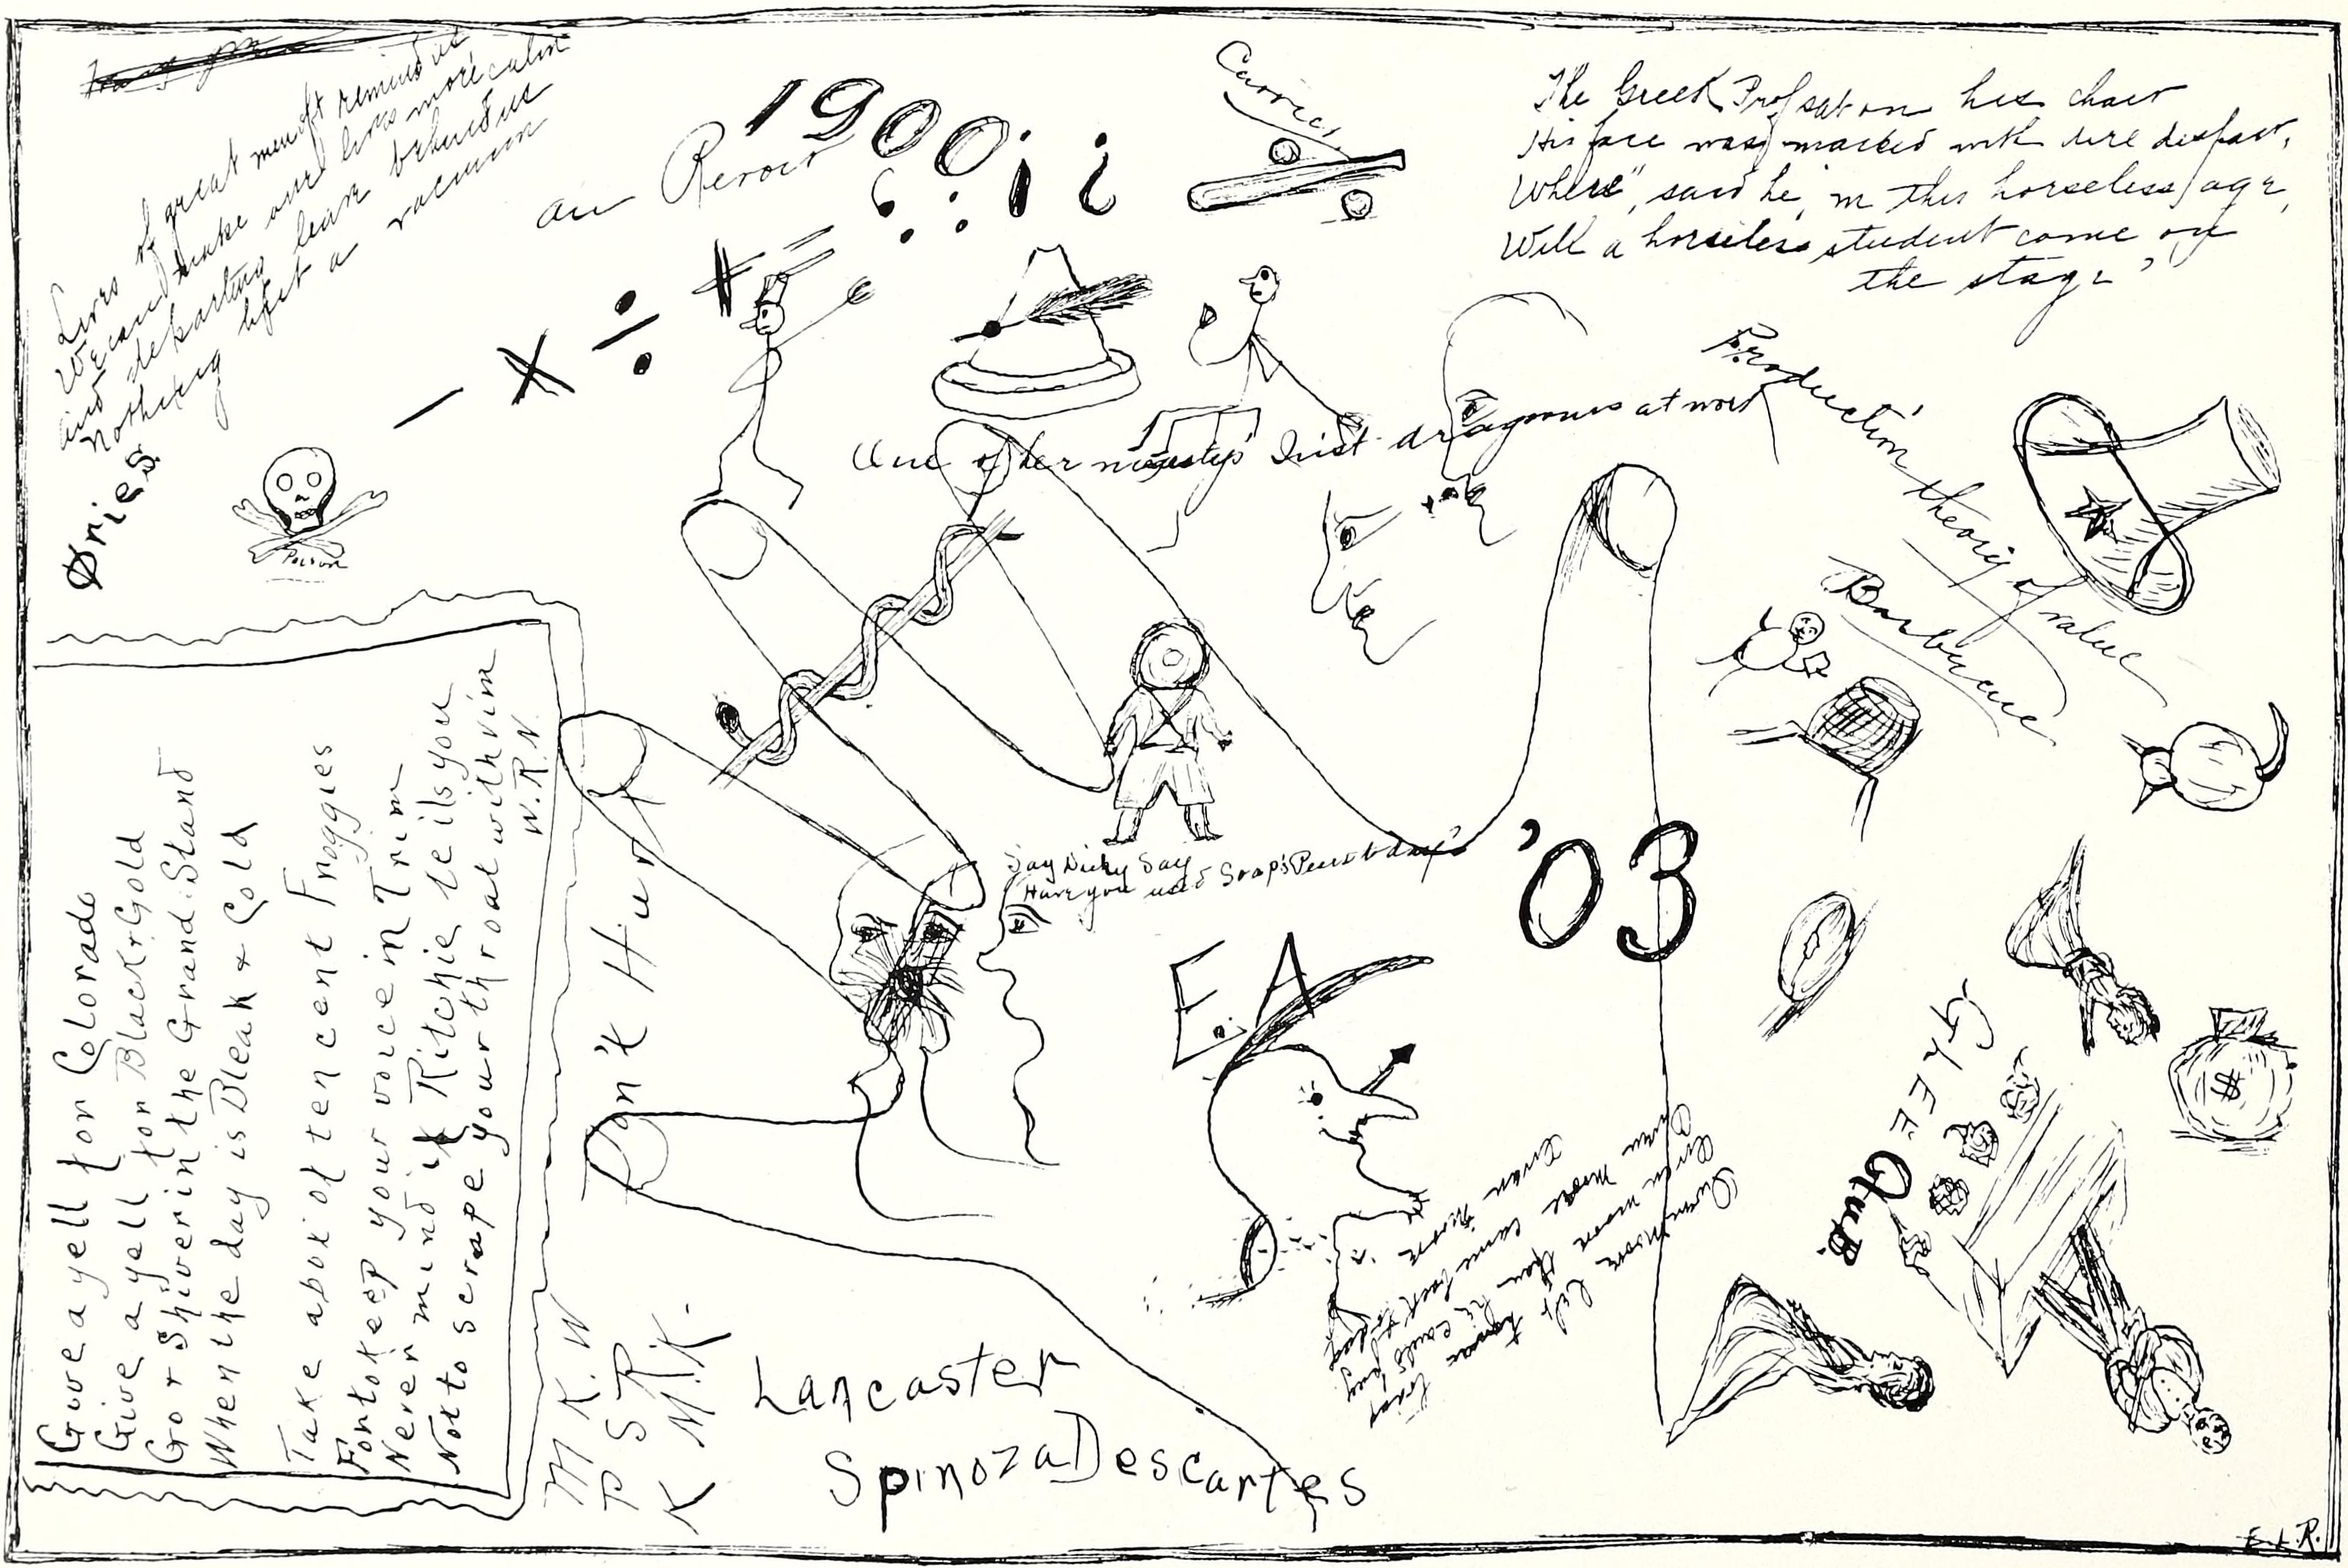 Lives of great men oft remind us
We can make our lives more calm
and departing leave behind us
Nothing but a vacuum
Øries.
Poison
- x ÷ # =
au Revoir
1900
Curricu
The Greek Prof sat on his chair
His face was marked with dire despair,
Where", said he, in this horseless age,
Will a horseless student come on
the stage"
One of her majesty's Inist dragoons at work
Production theory of value
Barbecue
Say Dicky Say
Have you used Soap's Pears to day?
'03
E.A
GLEE CLUB.
$
Give a yell for Colorado
Give a yell for Black & Gold
Go r Shiver in the Grand Stand
When the day is Bleak & Cold
Take a box of ten cent Froggies
For to keep your voice in Trim
Never mind if Ritchie tells you
Not to scrape your throat with vim
W.R.N.
Don't Hurry
M K. W
P S R.
K M.K.
Lancaster
Spinoza Descartes
E.L.R.